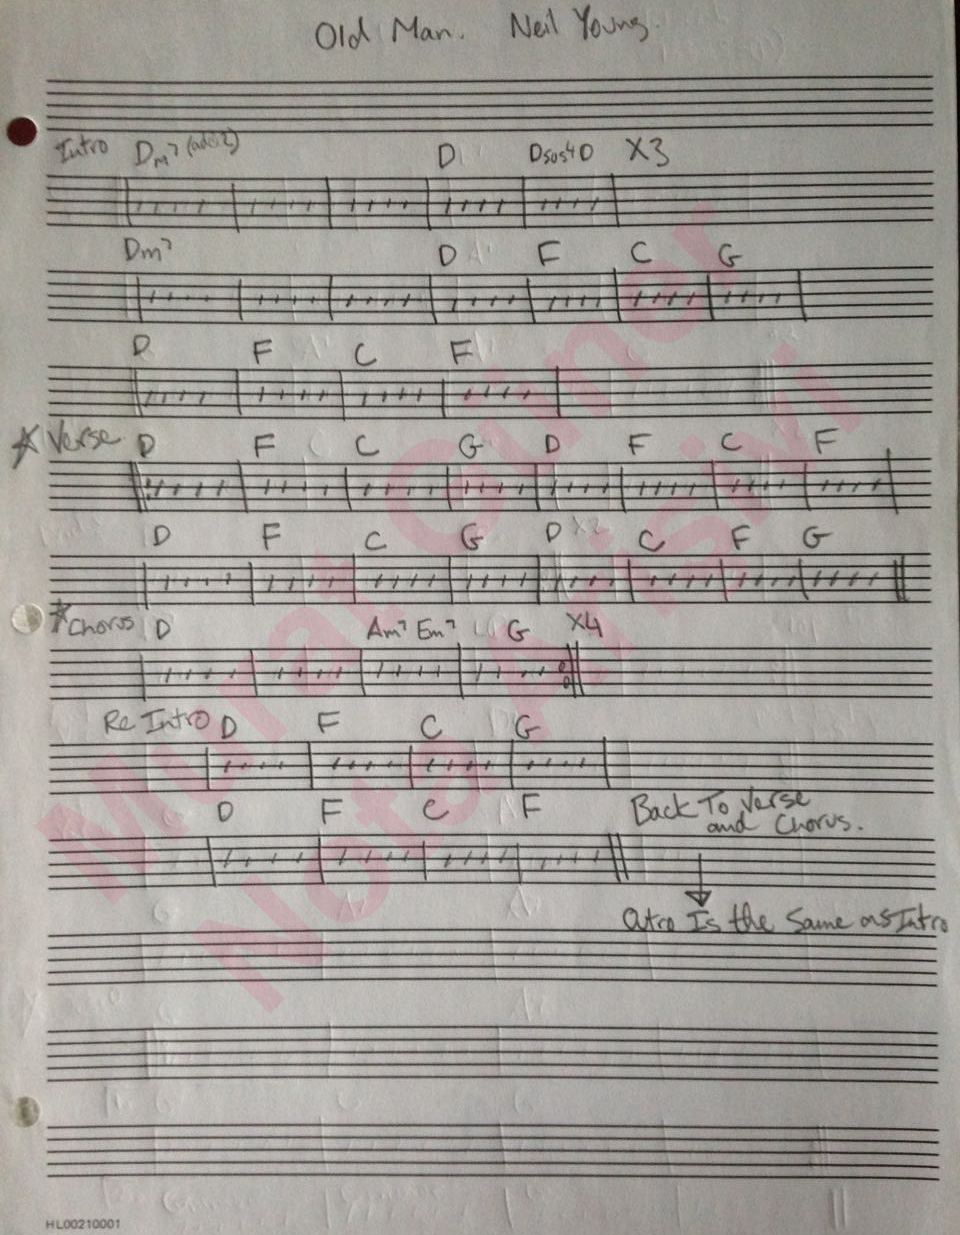 Old Man. Neil Young.
Intro Dm7 (add2) D Dsus4 D X3
Dm7 D F C G
D F C F
* Verse D F C G D F C F
D F C G D C F G
* Chorus D Am7 Em7 G X4
Re Intro D F C G
D F C F Back To Verse
and Chorus.
Outro Is the Same as Intro
HL00210001
Murat Güner
Nota Arşivi